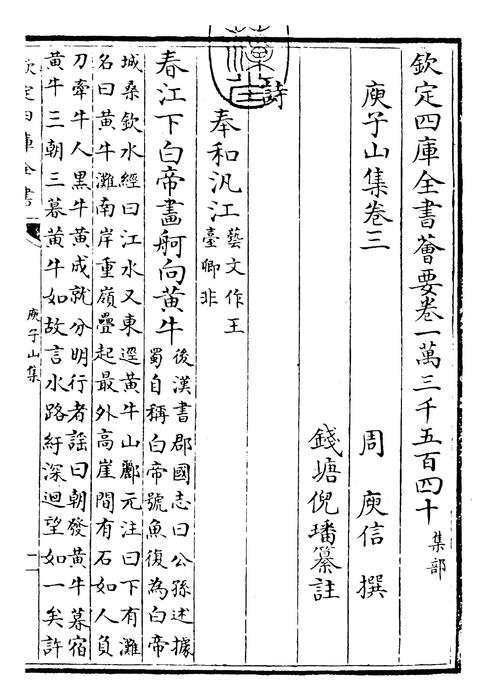 欽定四庫全書薈要卷一萬三千五百四十 集部
庾子山集卷三
周 庾信 撰
錢塘倪璠纂註
詩
奉和汎江 藝文作王臺卿非
春江下白帝畫舸向黄牛 後漢書郡國志曰公孫述據蜀自稱白帝號魚復為白帝
城桑欽水經曰江水又東逕黄牛山酈元注曰下有灘
名曰黄牛灘南岸重嶺疊起最外髙崖間有石如人負
刀牽牛人黑牛黄成就分明行者謡曰朝發黄牛暮宿
黄牛三朝三暮黄牛如故言水路紆深迴望如一矣許
欽定四庫全書
庾子山集
一